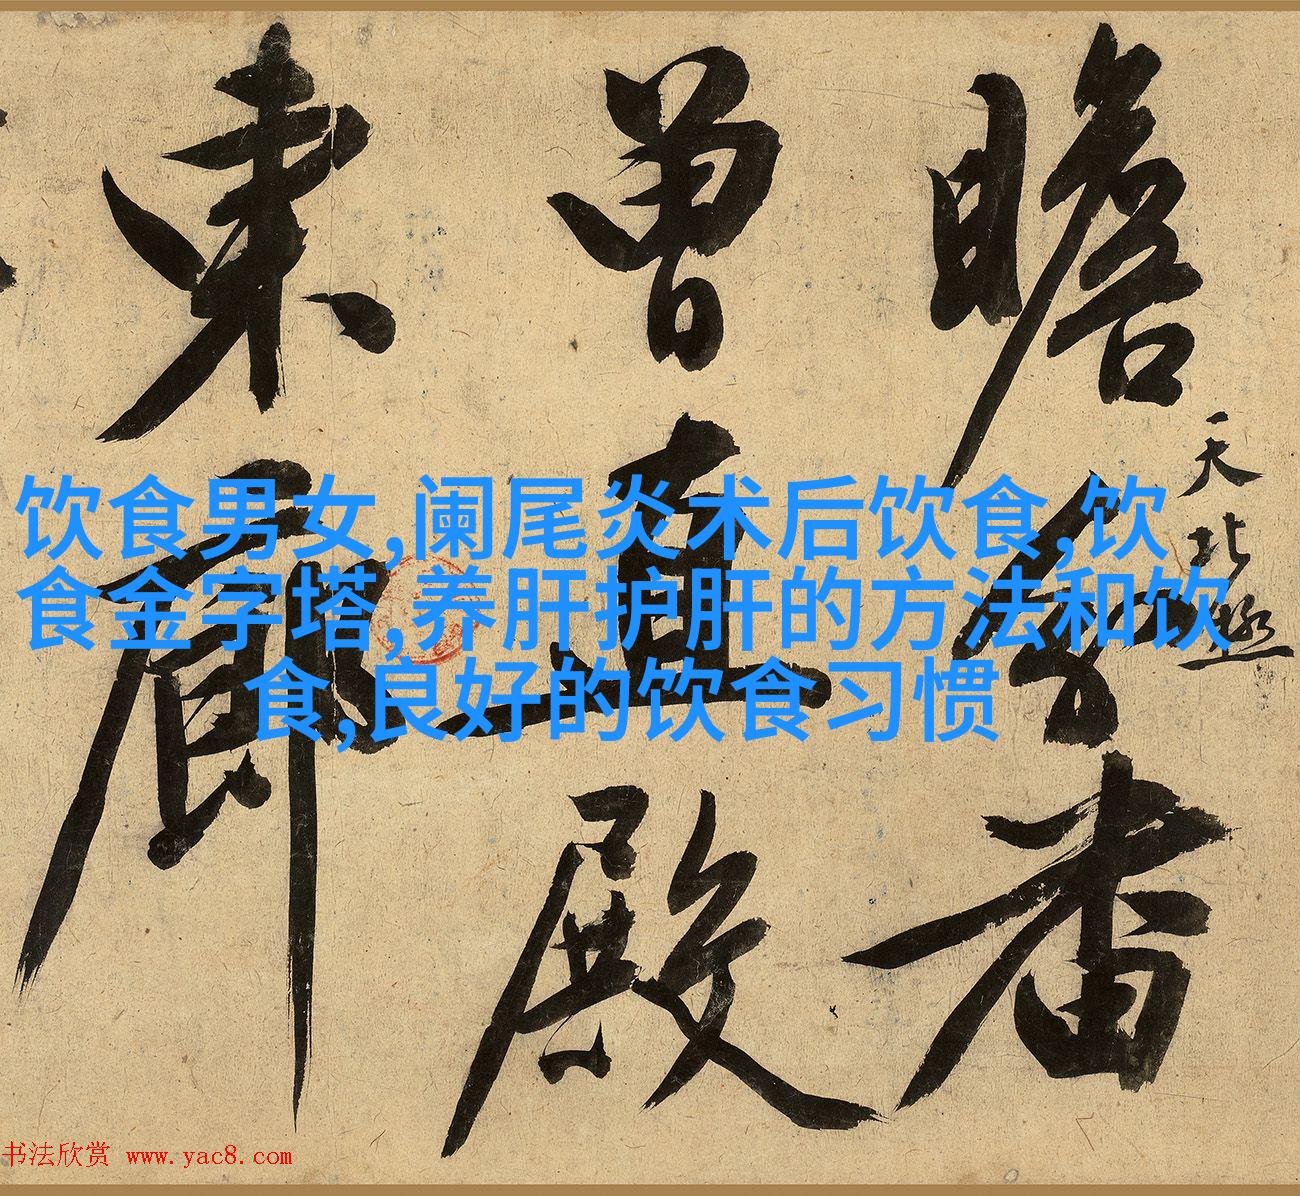 瞻
天
北
番
曾
直
殿
東
廊
饮食男女,阑尾炎术后饮食,饮
食金字塔,养肝护肝的方法和饮
食,良好的饮食习惯
书法欣赏 www.yac8.com